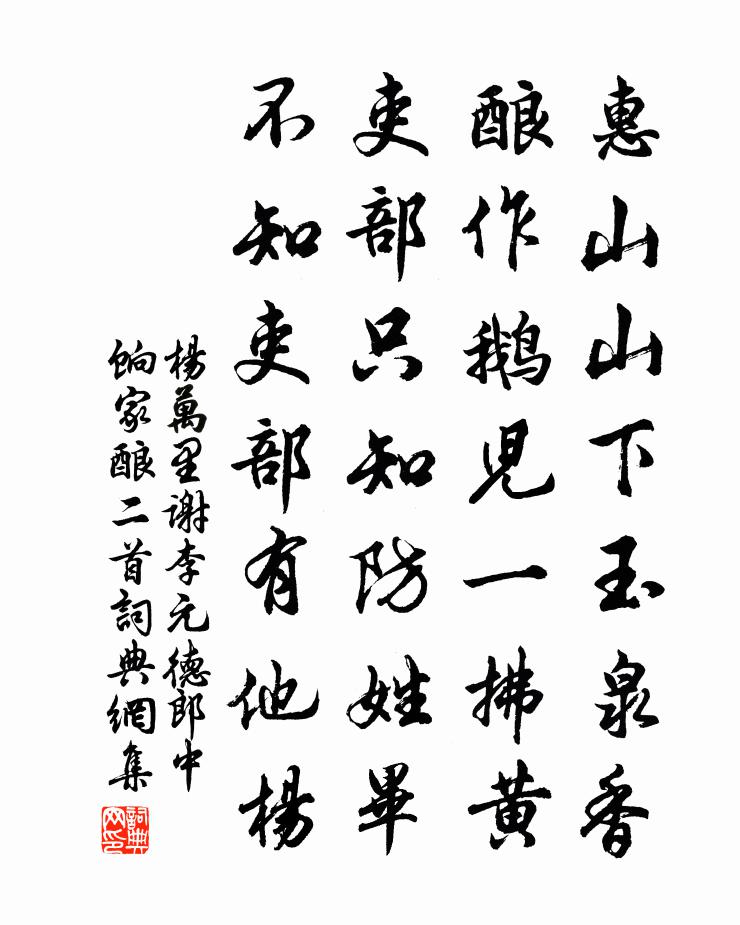 惠山山下玉泉香
酿作鹅児一拂黄
吏部只知防姓畢
不知吏部有他楊
楊萬里谢李元德郎中
饷家酿二首詞典網集
詞典网印